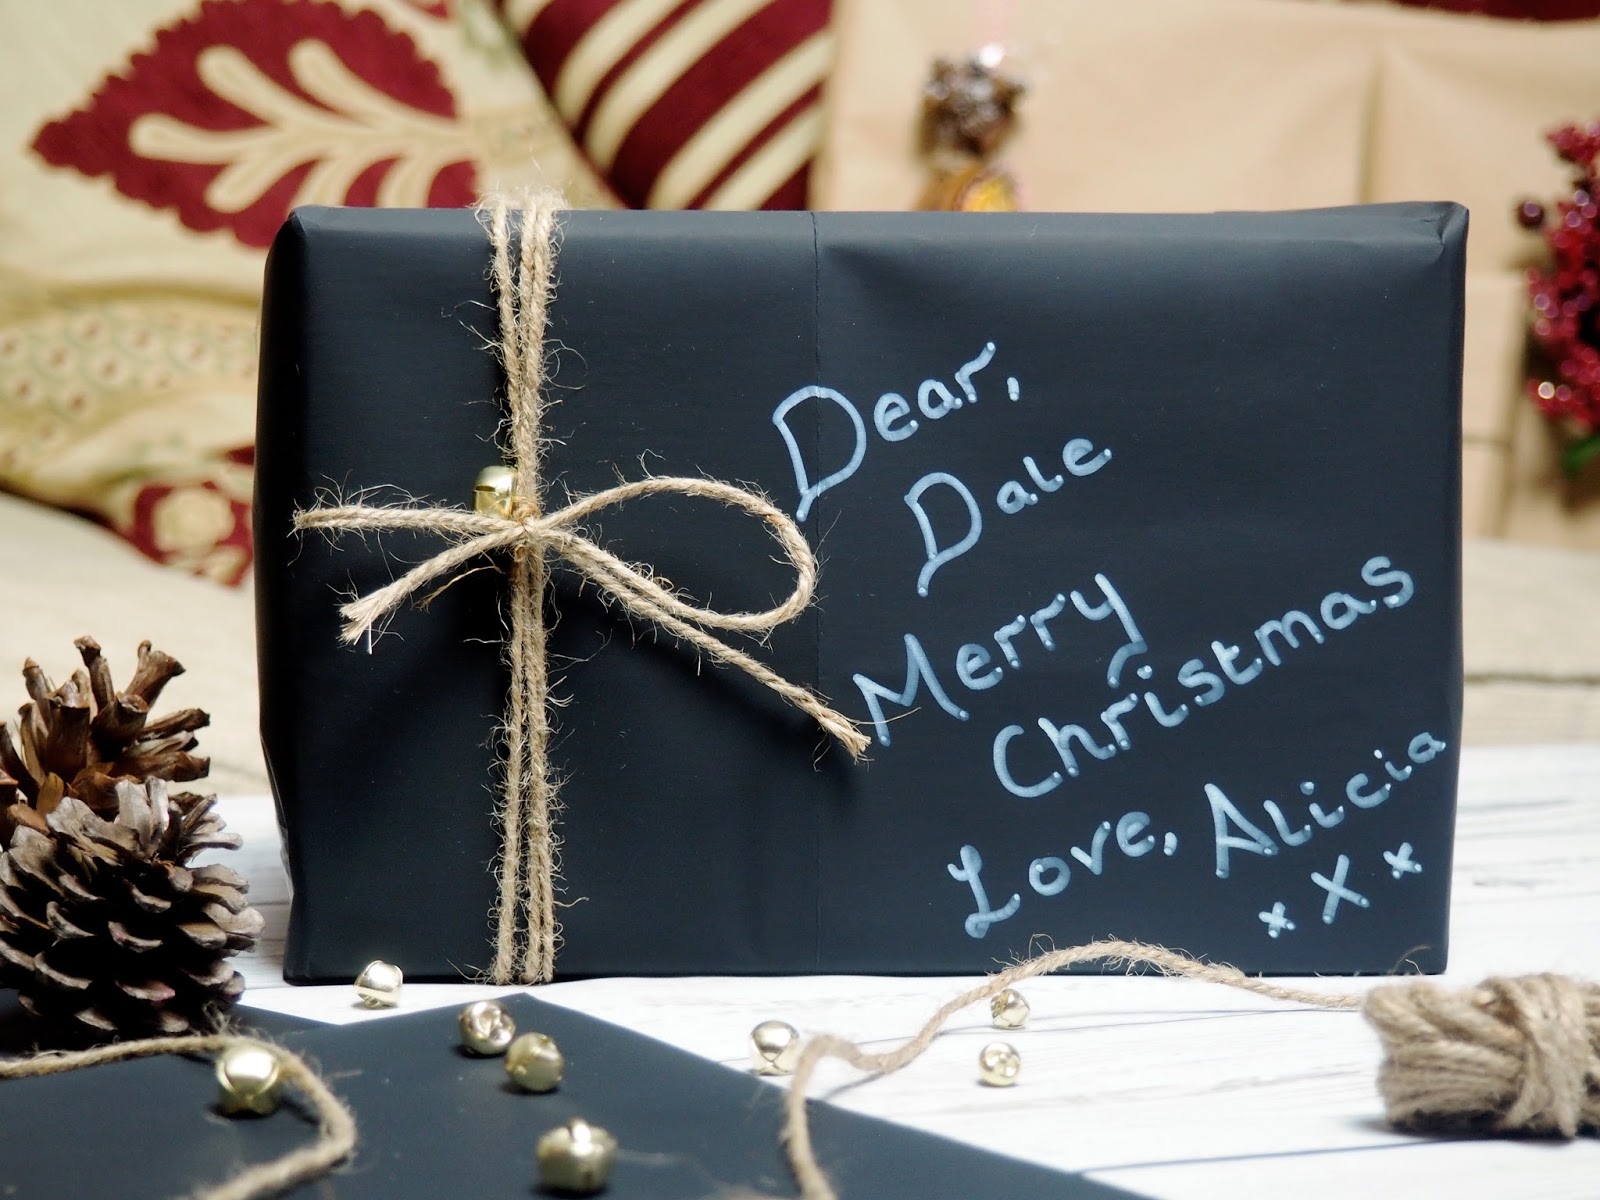 Dear,
Dale
Merry
Christmas
Love, Alicia
x X x